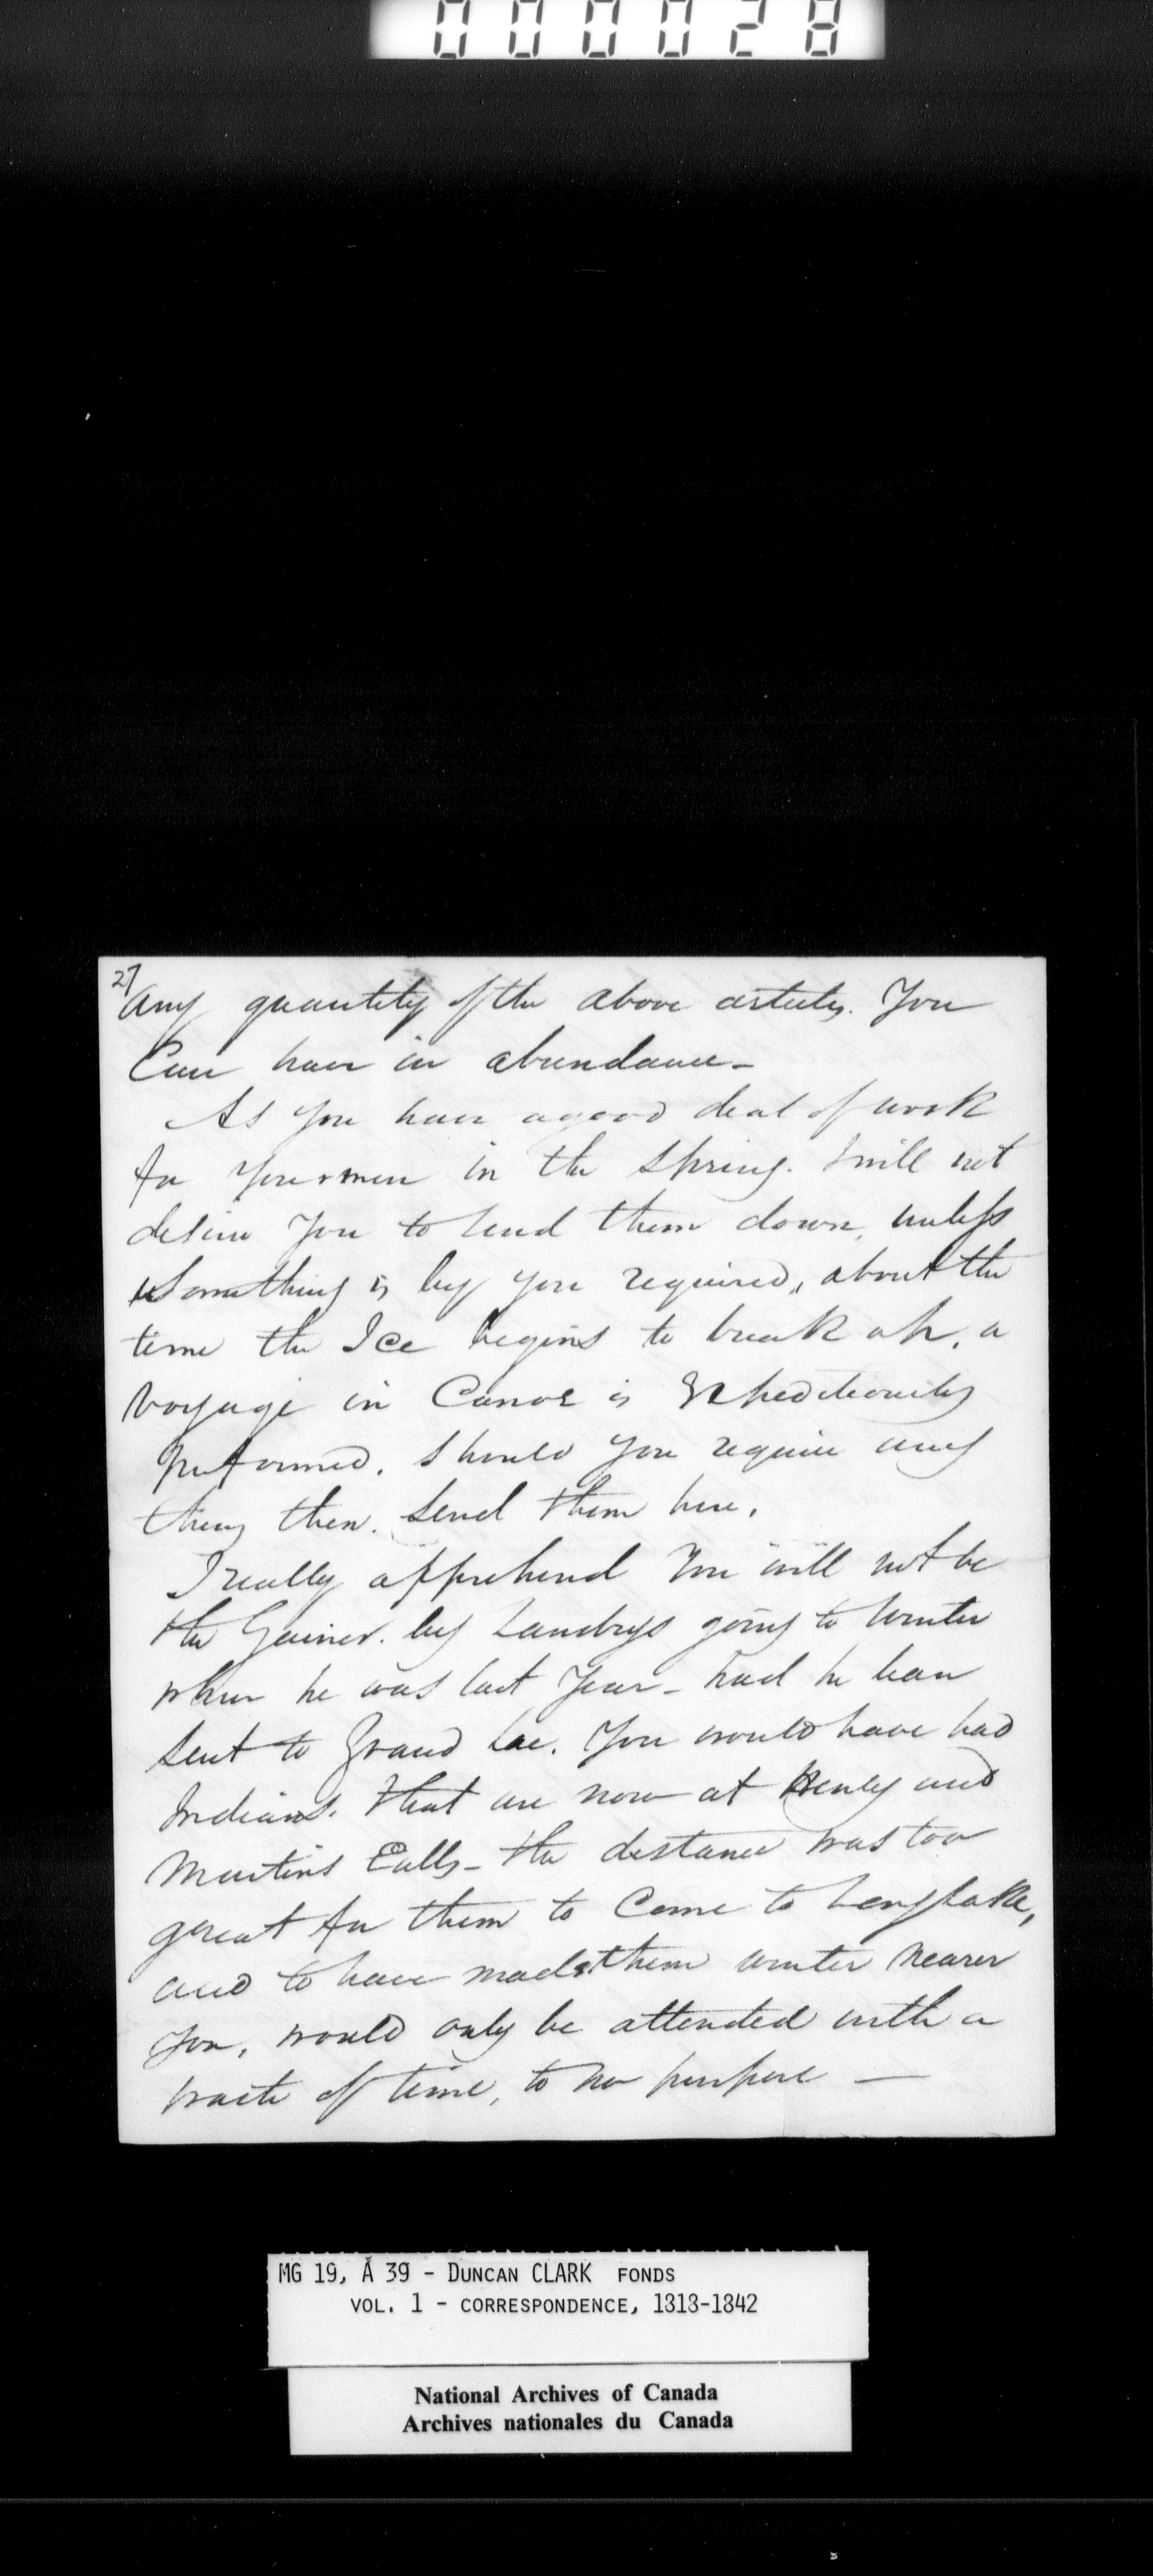 000028
27
Any quantity of the above articles. You
Can have in abundance -
As you have a good deal of work
for your men in the Spring. I will not
desire you to send them down, unless
Something is by you required, about the
time the Ice begins to break up, a
voyage in Canoe is Expeditiously
performed. Should you require any
thing then. Send them here.
I really apprehend You will not be
the Gainer. by Landrys going to Winter
where he was last Year - had he been
Sent to Grand Lac. You would have had
Indians. that are now at Henly and
Martins Falls - the distance was too
great for them to Come to Longlake,
and to have made them winter nearer
you, would only be attended with a
waste of time, to no purpose —
MG 19, A 39 - DUNCAN CLARK FONDS
VOL. 1 - CORRESPONDENCE, 1313-1342
National Archives of Canada
Archives nationales du Canada